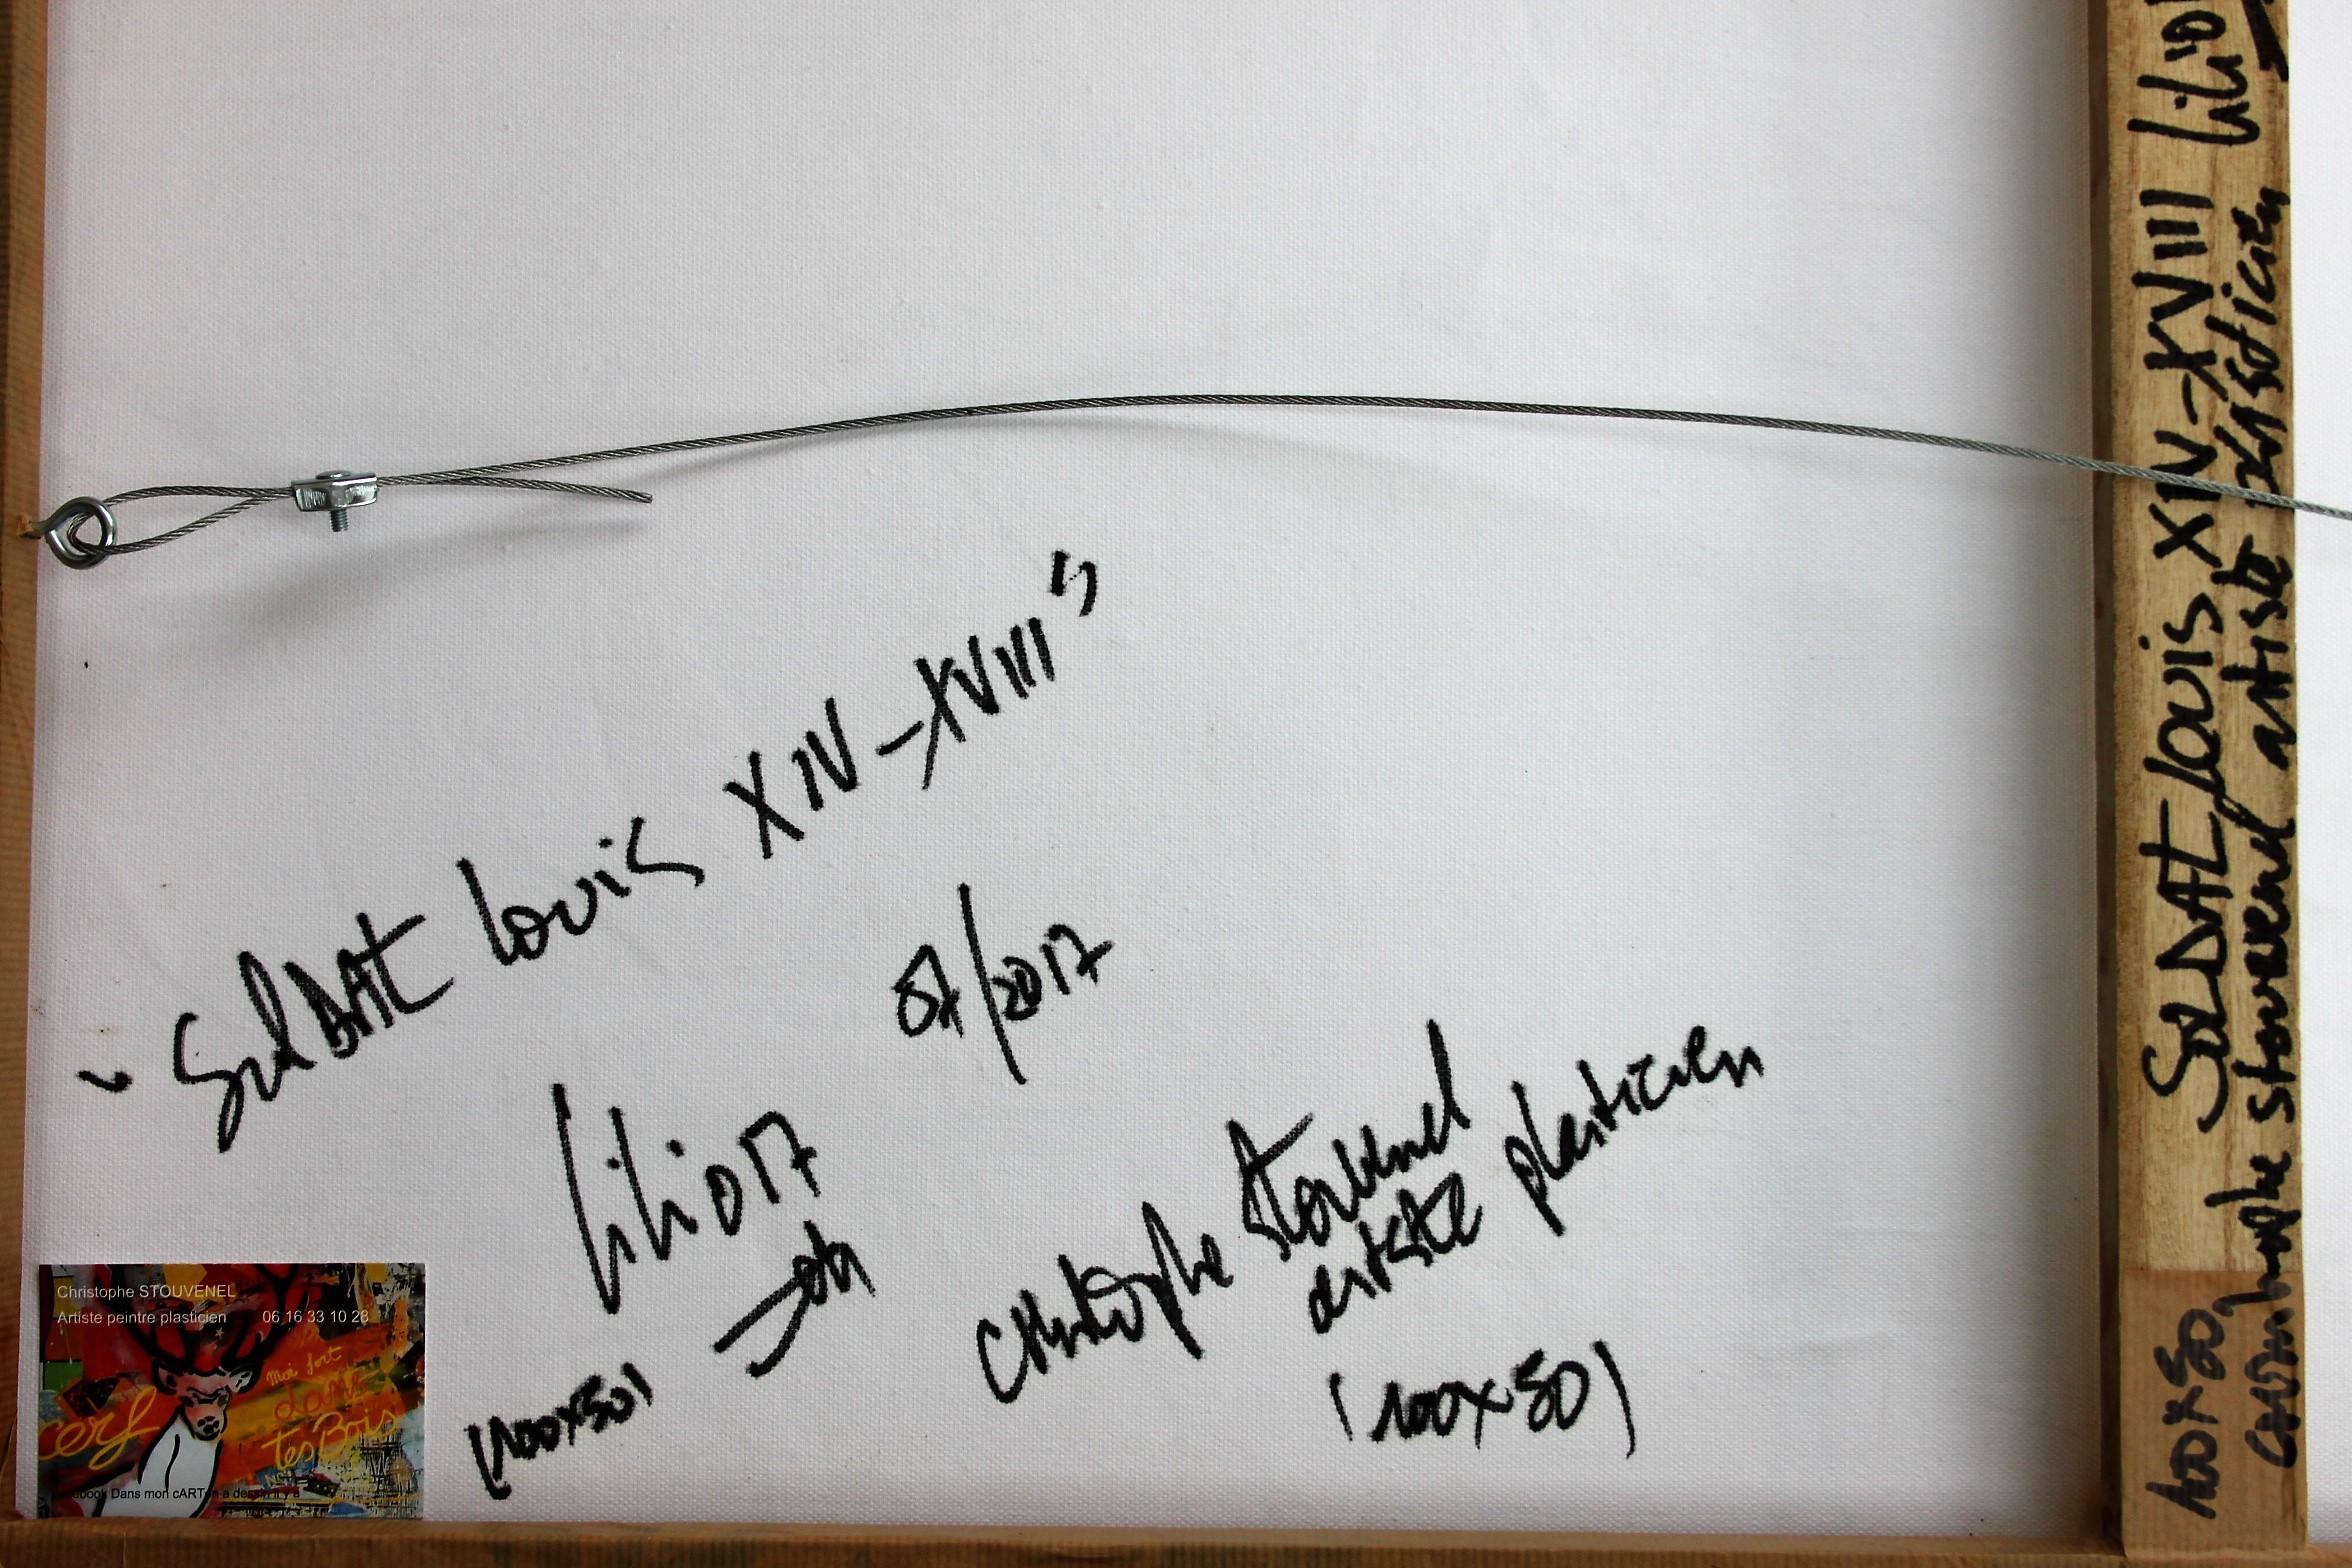 "SOLDAT Louis XIV-XVIII"
07/2017
Lili017
(100x50)
Christophe Stouvenel
artiste plasticien
(100x50)
SOLDAT Louis XIV-XVIII
Christophe Stouvenel artiste plasticien
100x50
Christophe STOUVENEL
Artiste peintre plasticien 06 16 33 10 28
cerf
Moi fort
dans
tes Bois
Dans mon cARTon a dessin il y a